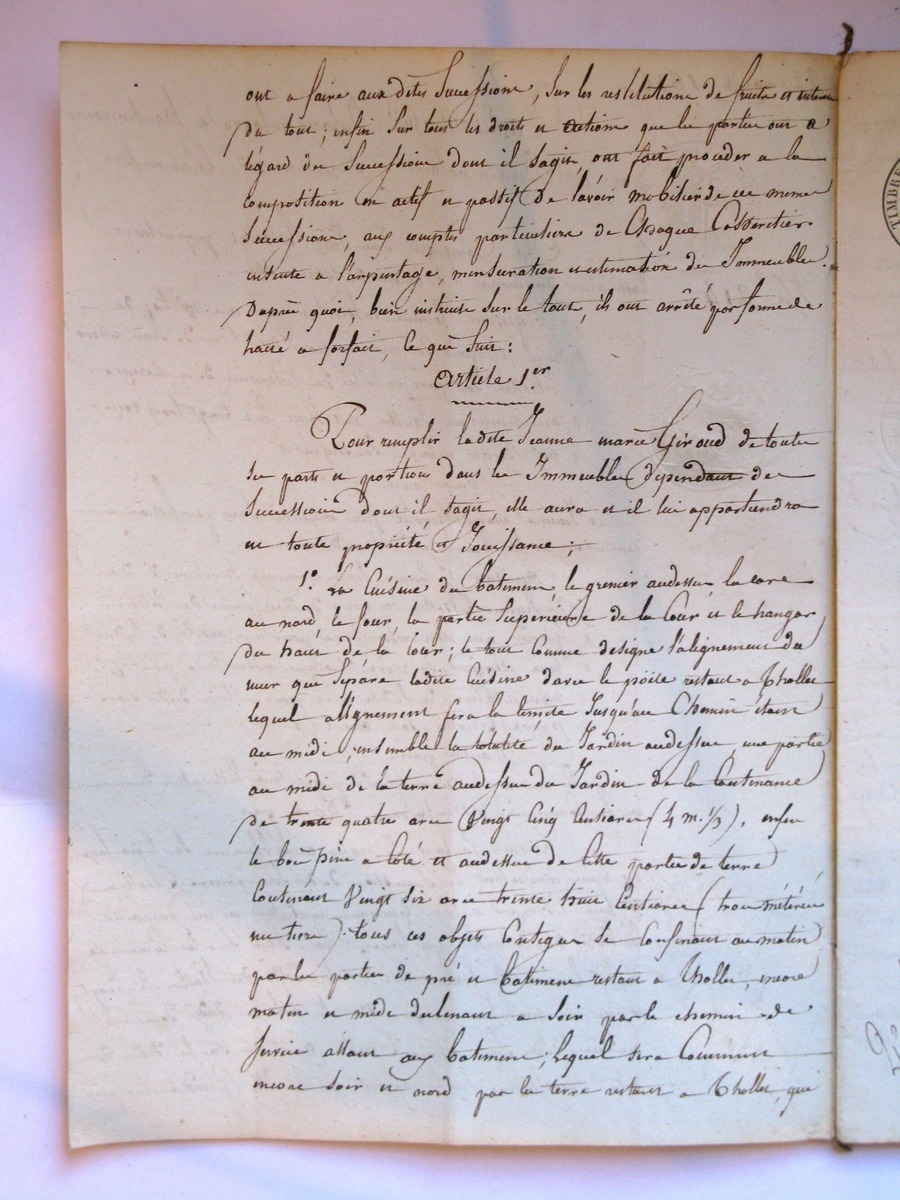 ont a faire aux dites Successions, Sur les restitutions de fruits et interets
du tout; enfin Sur tous les droits et actions que les parties ont a
légard des Successions dont il sagit, ont fait proceder a la
composition en actif et passif de lavoir mobilier de ces memes
Successions, aux comptes particuliers de Chaque Cohéritier
ensuite a l'arpentage, mensuration et estimation des Immeubles.
Daprès quoi, bien instruits Sur le tout, ils ont arrêté par forme de
traité a forfait, ce qui Suit:
Article 1er
Pour remplir ladite Jeanne marie Giroud de toutes
ses parts et portions dans les Immeubles dependant des
Successions dont il sagit, elle aura et il lui appartiendra
en toute propriété et Jouissance;
1º La Cuisine du batiment, le grenier audessus, la cave
au nord, le four, la partie Supérieure de la Cour et le hangar
du haut de la Cour; le tout comme designe l'alignement du
mur qui Sépare ladite Cuisine davec le poële restant a Thollet
lequel alignement fera la limite Jusqu'au Chemin étant
au midi, ensemble la totalité du Jardin audessus, une partie
au midi de la terre audessus du Jardin de la Contenance
de trente quatre ares Vingt Cinq Centiares (4 m. 1/3), enfin
le bois pins a Coté et audessus de Cette partie de terre
Contenant Vingt six ares trente huit Centiares (trois métérées
un tiers). tous ces objets Contigus se Confinant au matin
par les parties de pré et batiments restant a Thollet, encore
matin et midi declinant a Soir par le chemin de
Service allant aux batiments; lequel sera Commun
encore soir et nord par la terre restant a Thollet, qui
TIMBRE